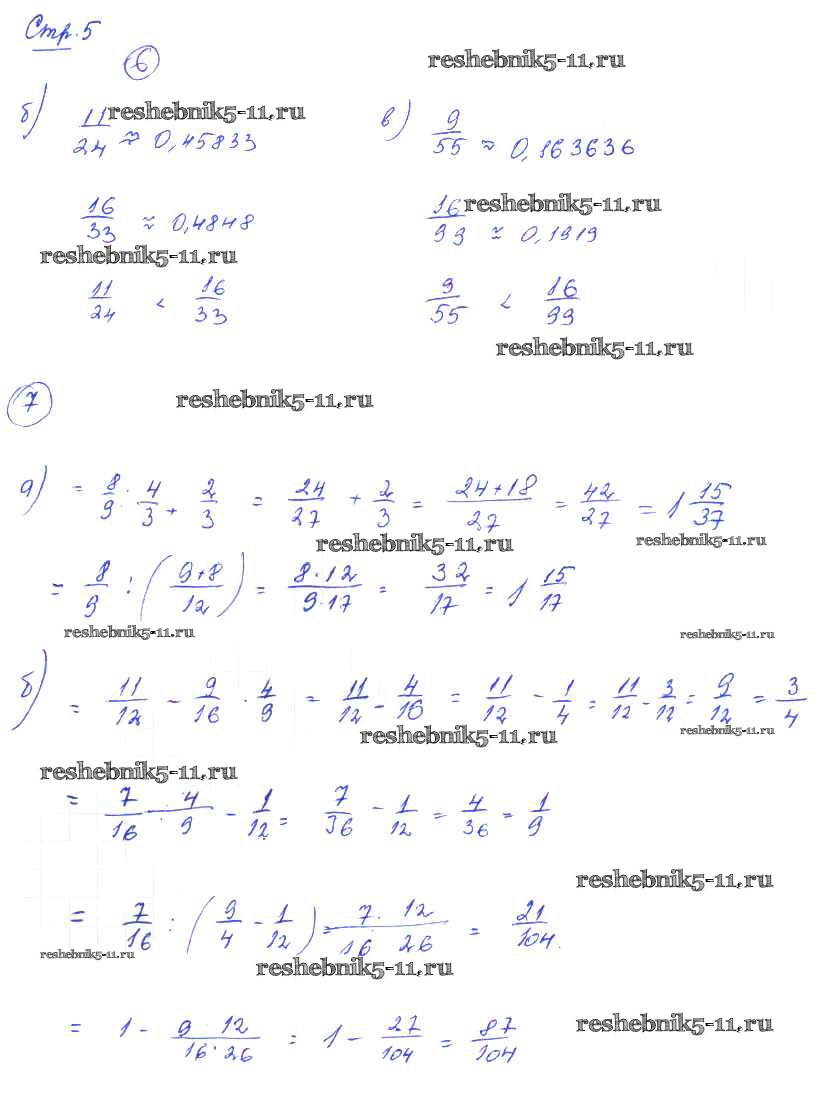 Стр. 5
6
reshebnik5-11.ru
б) 11/24 ≈ 0,45833 reshebnik5-11.ru в) 9/55 ≈ 0,163636
16/33 ≈ 0,4848 16/99 ≈ 0,1919 reshebnik5-11.ru
reshebnik5-11.ru
11/24 < 16/33 9/55 < 16/99
reshebnik5-11.ru
7 reshebnik5-11.ru
а) = 8/9 · 4/3 + 2/3 = 24/27 + 2/3 = 24+18/27 = 42/27 = 1 15/37
reshebnik5-11.ru reshebnik5-11.ru
= 8/9 : (9+8/12) = 8·12/9·17 = 32/17 = 1 15/17
reshebnik5-11.ru reshebnik5-11.ru
б) = 11/12 - 9/16 · 4/9 = 11/12 - 4/16 = 11/12 - 1/4 = 11/12 - 3/12 = 9/12 = 3/4
reshebnik5-11.ru reshebnik5-11.ru
reshebnik5-11.ru
= 7/16 · 4/9 - 1/12 = 7/36 - 1/12 = 4/36 = 1/9
reshebnik5-11.ru
= 7/16 : (9/4 - 1/12) = 7·12/16 26 = 21/104.
reshebnik5-11.ru reshebnik5-11.ru
= 1 - 9·12/16·26 = 1 - 27/104 = 87/104
reshebnik5-11.ru